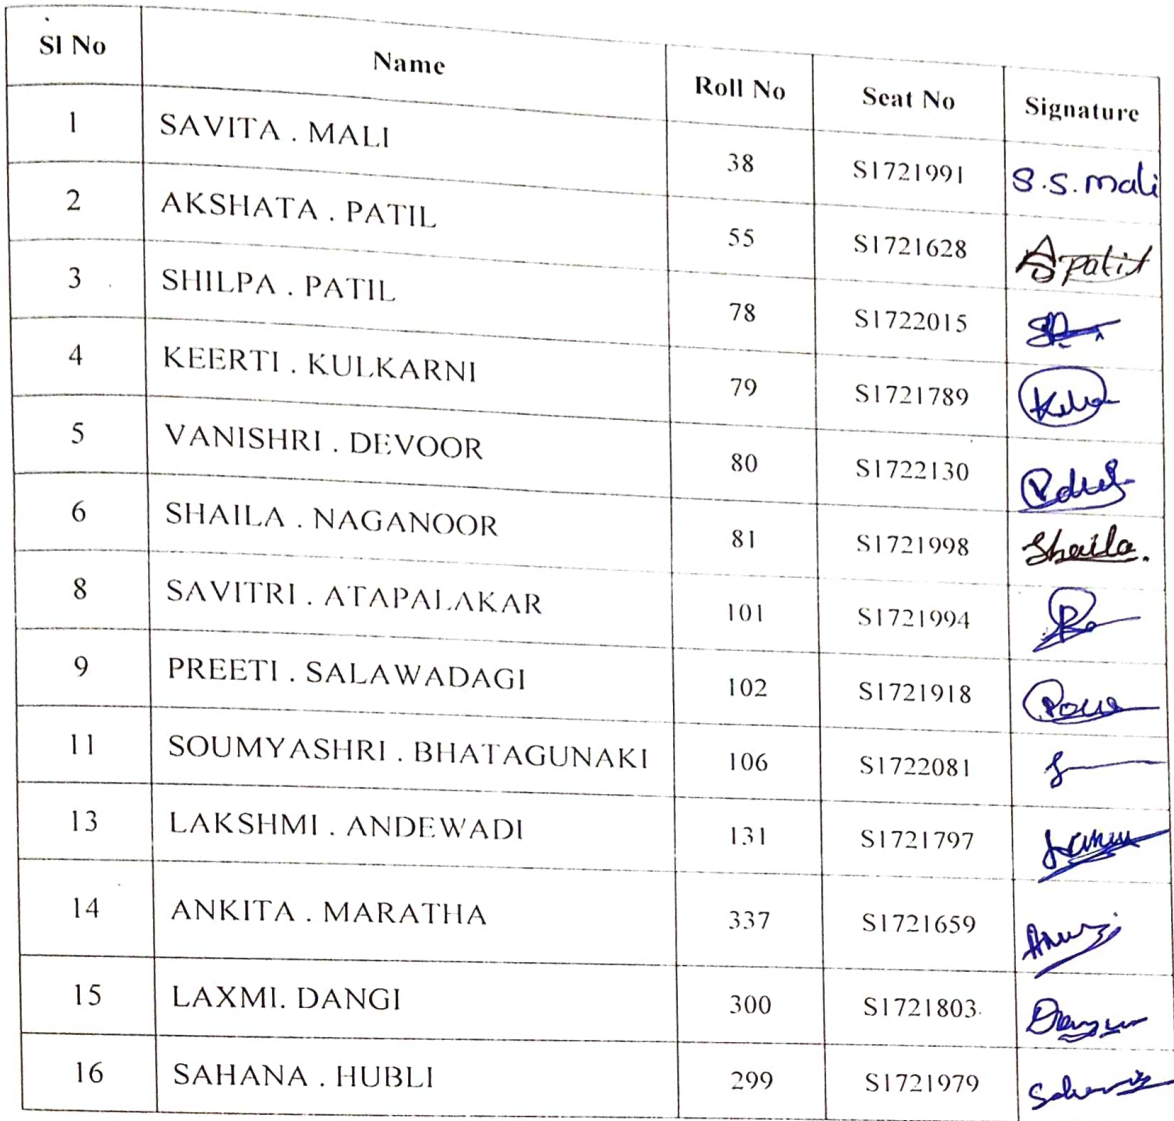 Sl No Name Roll No Seat No Signature
1 SAVITA . MALI 38 S1721991 S.S. mali
2 AKSHATA . PATIL 55 S1721628 Spatil
3 SHILPA . PATIL 78 S1722015
4 KEERTI . KULKARNI 79 S1721789
5 VANISHRI . DEVOOR 80 S1722130
6 SHAILA . NAGANOOR 81 S1721998 Shaila.
8 SAVITRI . ATAPALAKAR 101 S1721994
9 PREETI . SALAWADAGI 102 S1721918
11 SOUMYASHRI . BHATAGUNAKI 106 S1722081
13 LAKSHMI . ANDEWADI 131 S1721797
14 ANKITA . MARATHA 337 S1721659
15 LAXMI. DANGI 300 S1721803
16 SAHANA . HUBLI 299 S1721979